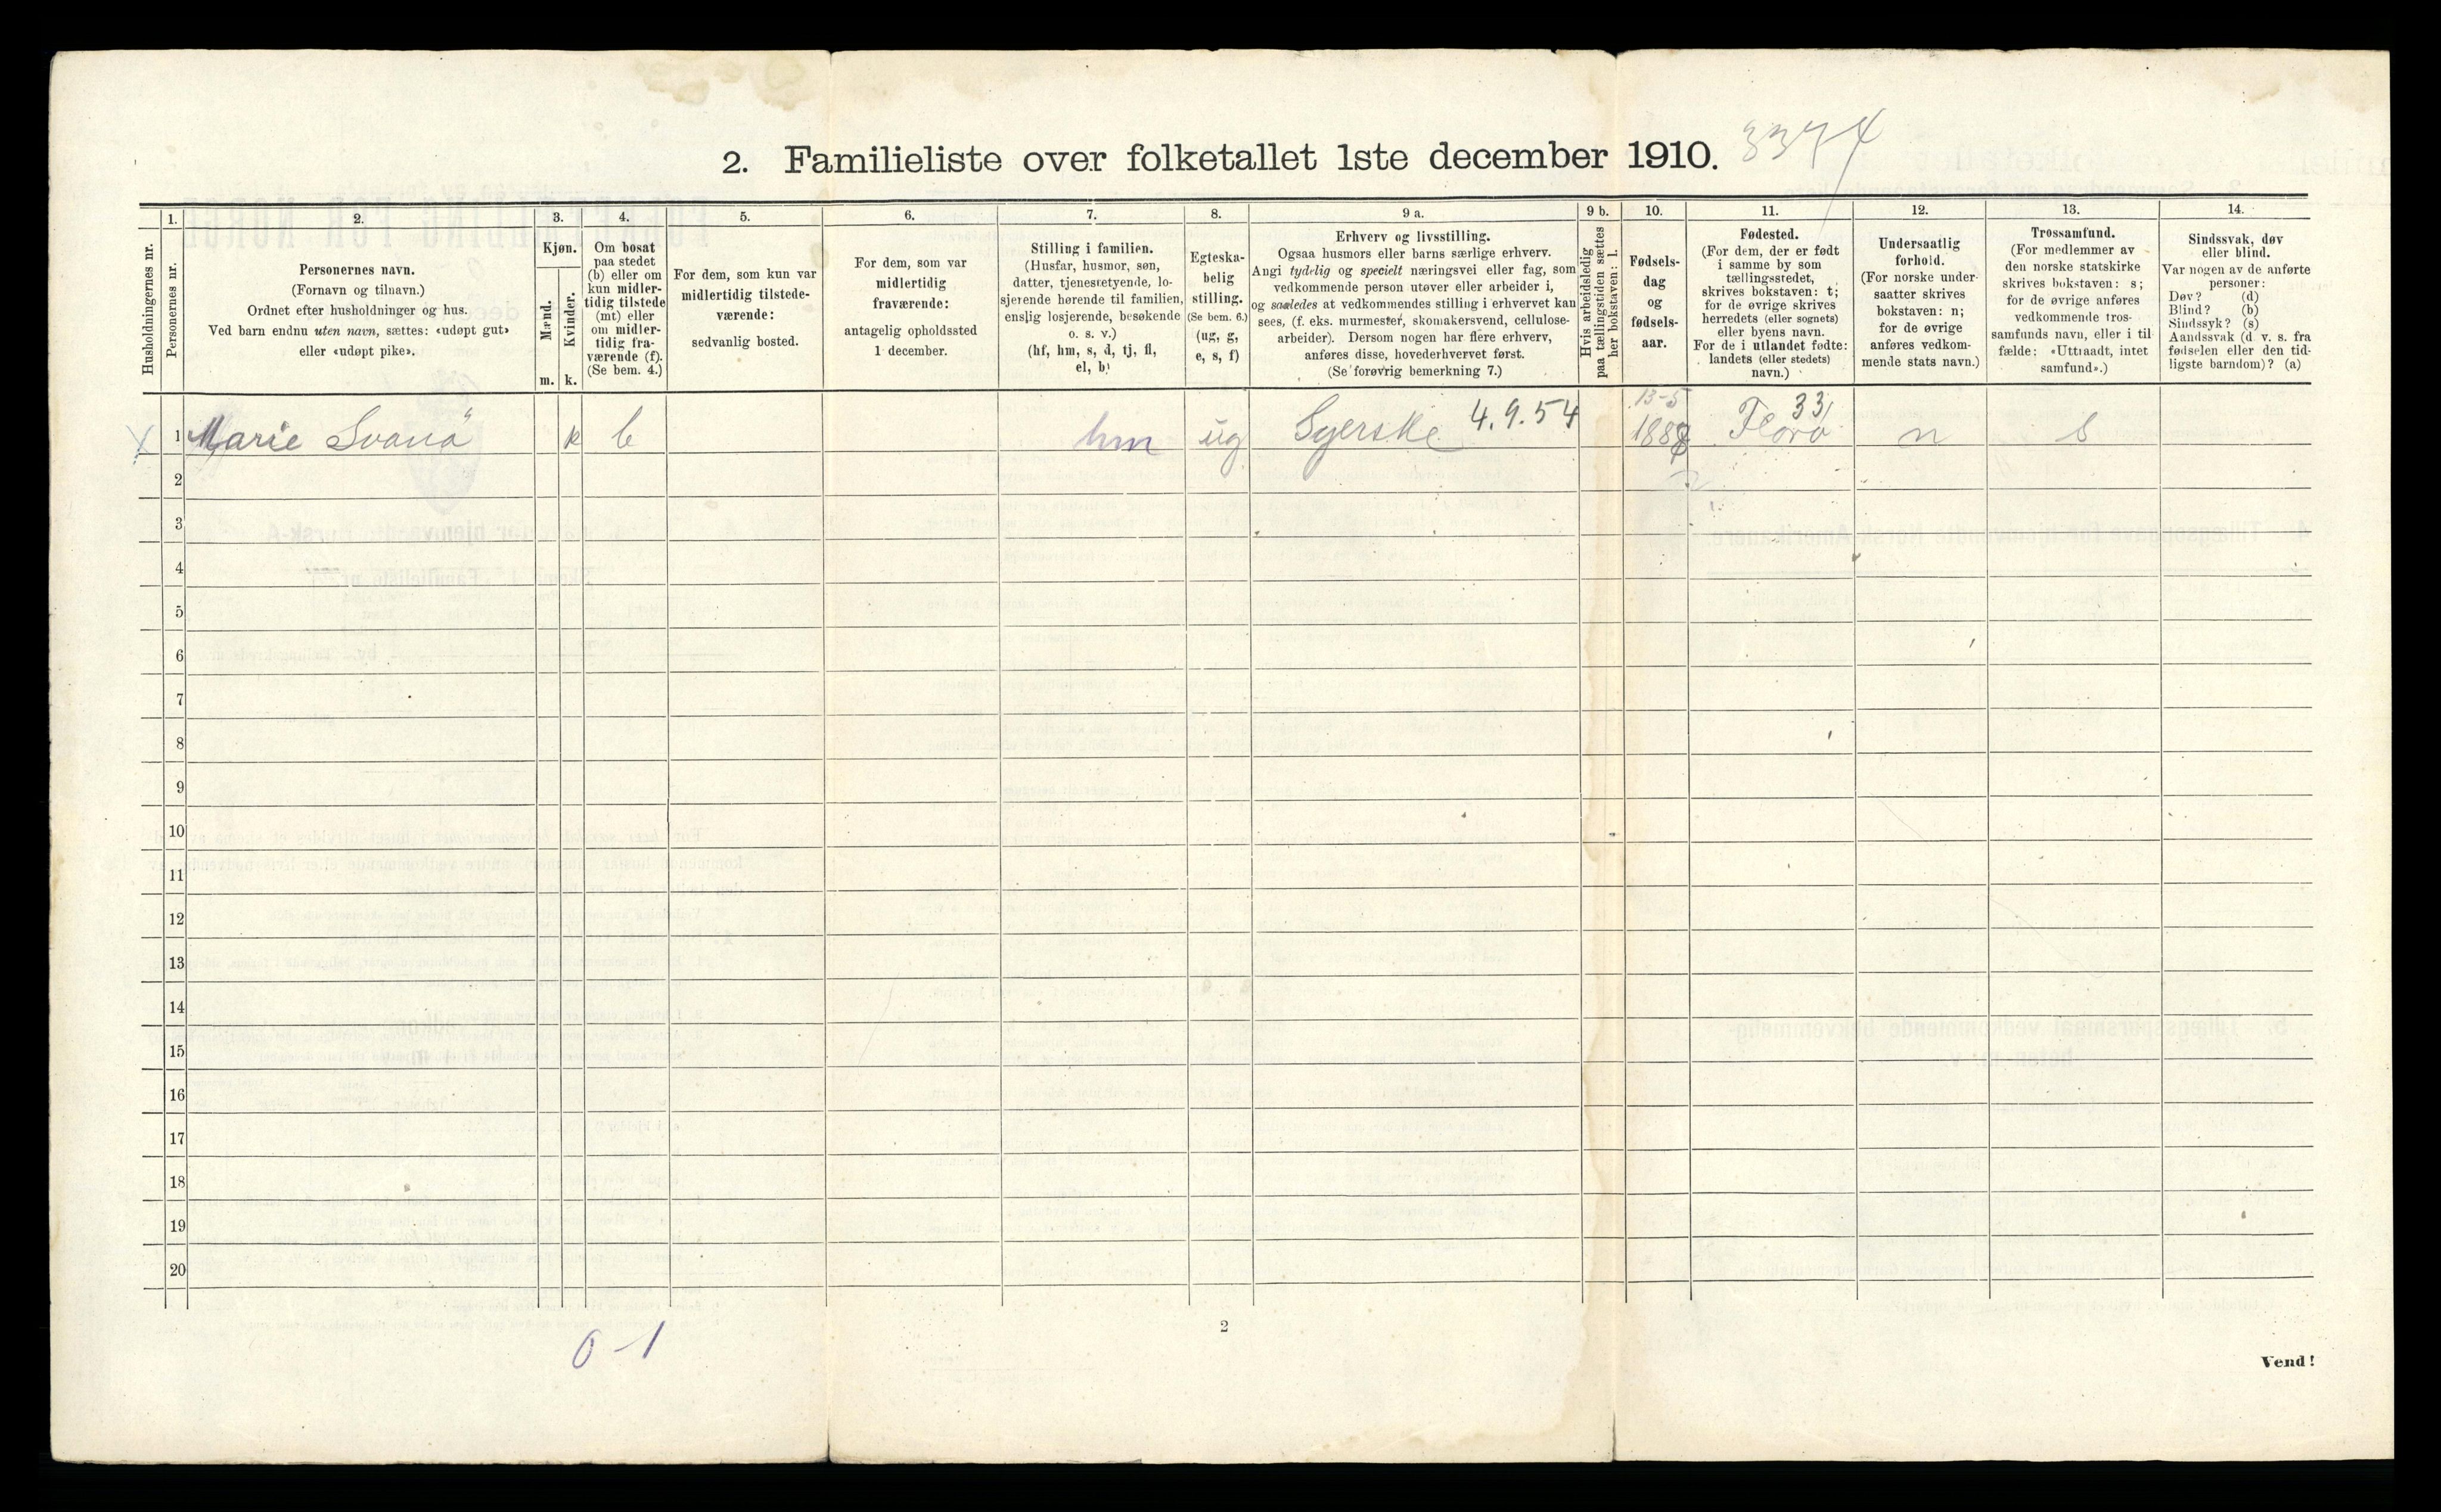 2. Familieliste over folketallet 1ste december 1910.
Husholdningernes nr.
1.
Personernes nr.
2.
Personernes navn.
(Fornavn og tilnavn.)
Ordnet efter husholdninger og hus.
Ved barn endnu uten navn, sættes: «udøpt gut»
eller «udøpt pike».
3.
Kjøn.
Mænd.
Kvinder.
m. k.
4.
Om bosat
paa stedet
(b) eller om
kun midler-
tidig tilstede
(mt) eller
om midler-
tidig fra-
værende (f).
(Se bem. 4.)
5.
For dem, som kun var
midlertidig tilstede-
værende:
sedvanlig bosted.
6.
For dem, som var
midlertidig
fraværende:
antagelig opholdssted
1 december.
7.
Stilling i familien.
(Husfar, husmor, søn,
datter, tjenestetyende, lo-
sjerende hørende til familien,
enslig losjerende, besøkende
o. s. v.)
(hf, hm, s, d, tj, fl,
el, b)
8.
Egteska-
belig
stilling.
(Se bem. 6.)
(ug, g,
e, s, f)
9 a.
Erhverv og livsstilling.
Ogsaa husmors eller barns særlige erhverv.
Angi tydelig og specielt næringsvei eller fag, som
vedkommende person utøver eller arbeider i,
og saaledes at vedkommendes stilling i erhvervet kan
sees, (f. eks. murmester, skomakersvend, cellulose-
arbeider). Dersom nogen har flere erhverv,
anføres disse, hovederhvervet først.
(Se forøvrig bemerkning 7.)
9 b.
Hvis arbeidsledig
paa tællingstiden sættes
her bokstaven: l.
10.
Fødsels-
dag
og
fødsels-
aar.
11.
Fødested.
(For dem, der er født
i samme by som
tællingsstedet,
skrives bokstaven: t;
for de øvrige skrives
herredets (eller sognets)
eller byens navn.
For de i utlandet fødte:
landets (eller stedets)
navn.)
12.
Undersaatlig
forhold.
(For norske under-
saatter skrives
bokstaven: n;
for de øvrige
anføres vedkom-
mende stats navn.)
13.
Trossamfund.
(For medlemmer av
den norske statskirke
skrives bokstaven: s;
for de øvrige anføres
vedkommende tros-
samfunds navn, eller i til-
fælde: «Uttraadt, intet
samfund».)
14.
Sindssvak, døv
eller blind.
Var nogen av de anførte
personer:
Døv? (d)
Blind? (b)
Sindssyk? (s)
Aandssvak (d. v. s. fra
fødselen eller den tid-
ligste barndom)? (a)
1 Marie Svanö k b hm ug Syerske 4.9.54 13-5 1888 33 Florö n s
2
3
4
5
6
7
8
9
10
11
12
13
14
15
16
17
18
19
20
0-1
2
Vend!